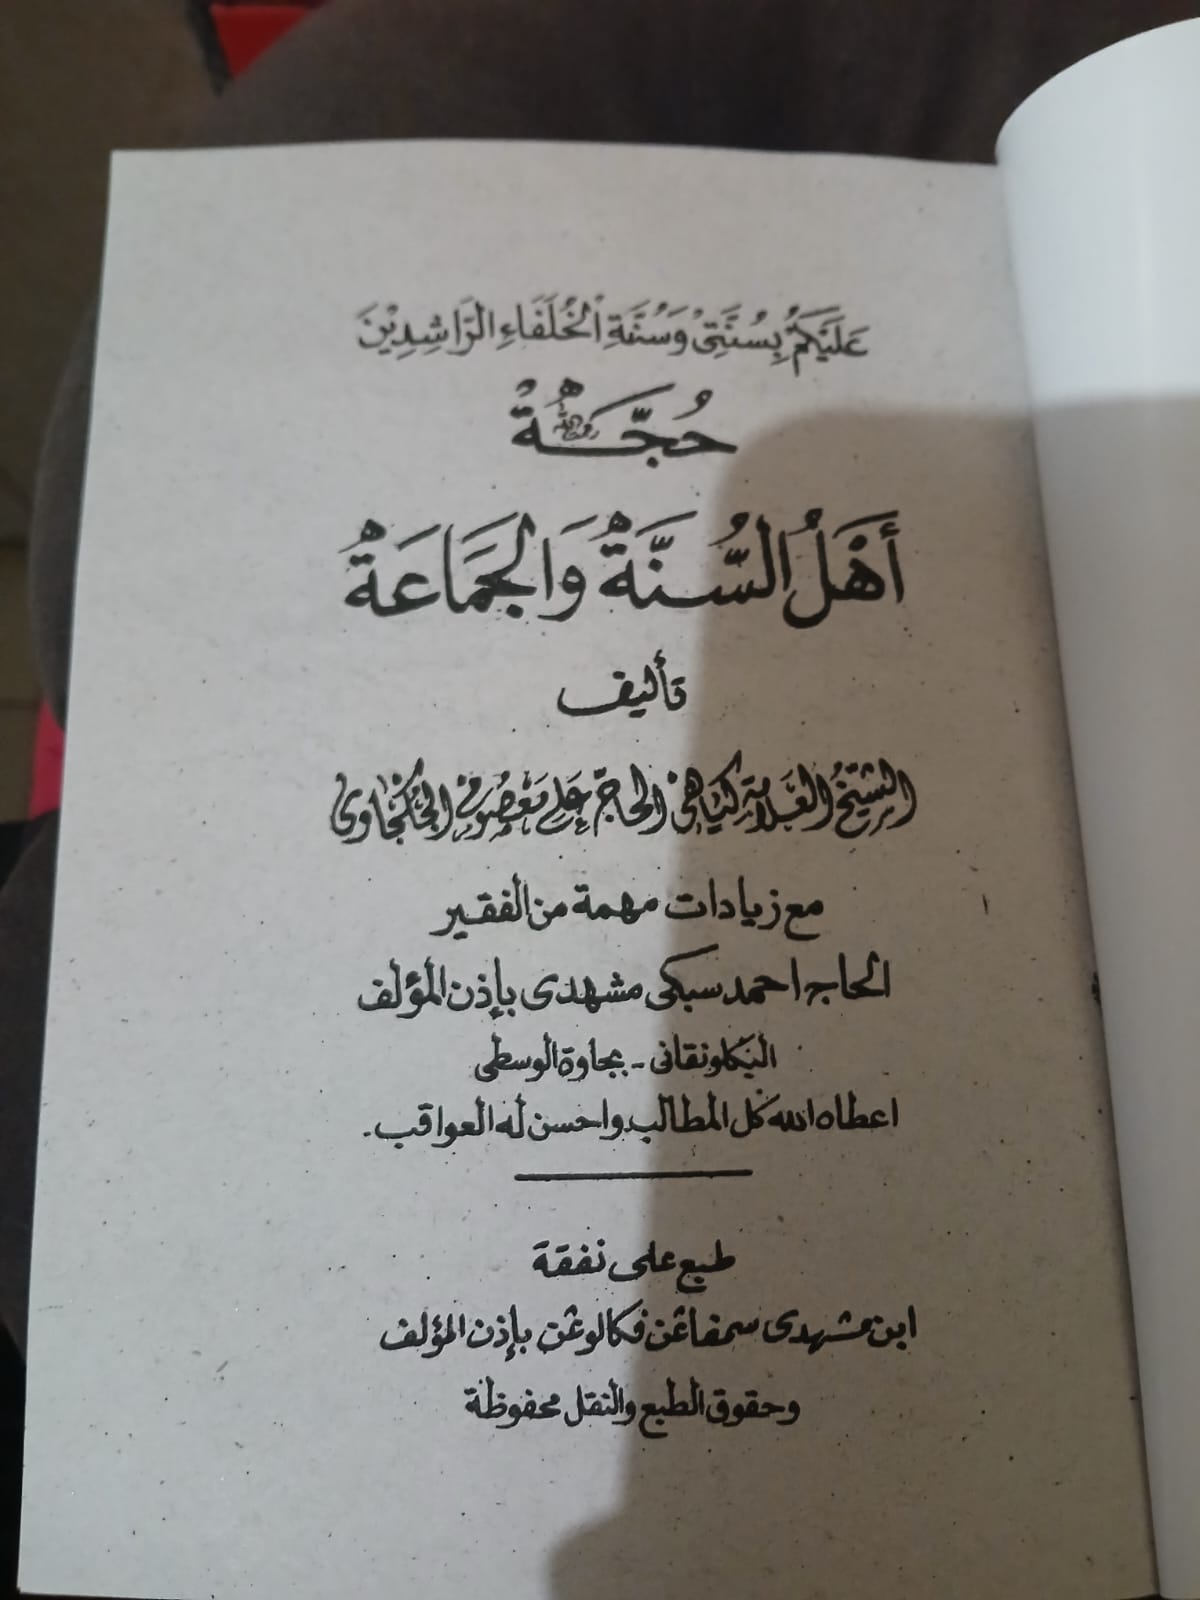 عَلَيْكُمْ بِسُنَّتِيْ وَسُنَّةِ الْخُلَفَاءِ الرَّاشِدِيْنَ
حُجَّةُ
أَهْلُ السُّنَّةُ وَالْجَمَاعَةُ
تأليف
الشيخ العلامة كياهي الحاج علي معصوم الجكجاوى
مع زيادات مهمة من الفقير
الحاج احمد سبكى مشهدى بإذن المؤلف
البكلونقانى - بجاوة الوسطى
اعطاه الله كل المطالب واحسن له العواقب.
طبع على نفقة
ابن مشهدى سمفاڠن فكالوڠن بإذن المؤلف
وحقوق الطبع والنقل محفوظة